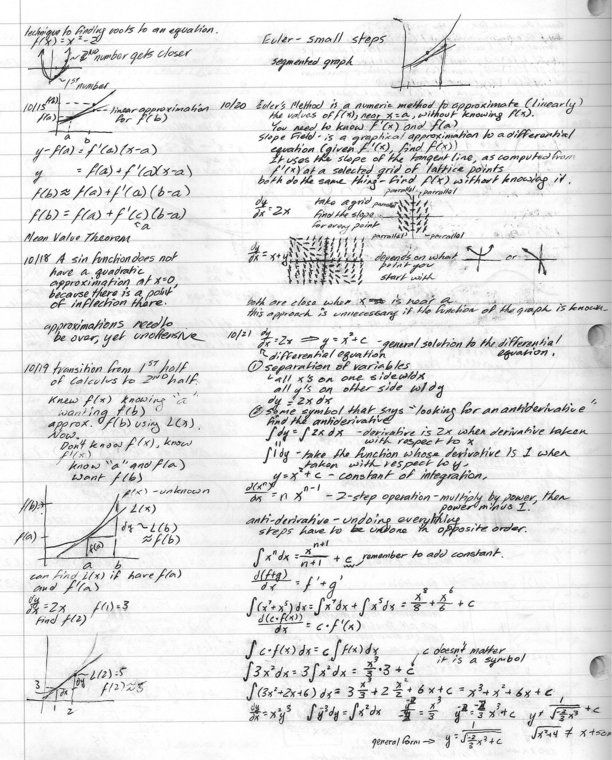 technique to finding roots to an equation.
f(x) = x² - 2
~ 2ND number gets closer
~ 1ST number
10/15
f(b)
f(a)
a b
- linear approximation for f(b)
y - f(a) = f'(a)(x-a)
y = f(a) + f'(a)(x-a)
f(b) ≈ f(a) + f'(a)(b-a)
f(b) = f(a) + f'(c)(b-a)
~a
Mean Value Theorem
10/18 A sin function does not
have a quadratic
approximation at x=0,
because there is a point
of inflection there.
approximations need to
be over, yet
10/19 transition from 1ST half
of calculus to 2ND half.
Knew f(x) knowing "a"
wanting f(b)
approx. f(b) using L(x).
Now.
Don't know f(x), know
f'(x)
know "a" and f(a)
want f(b)
f(x) - unknown
f(b)?
L(x)
dx ~ L(b)
≈ f(b)
f(a)
a b
can find L(x) if have f(a)
and f'(a)
dy/dx = 2x f(1) = 3
find f(2)
L(2) = 5
f(2) ≈ 5
3
dx
dy
1 2
Euler - small steps
segmented graph
10/20 Euler's Method is a numeric method to approximate (linearly)
the values of f(x), near x=a, without knowing f(x).
You need to know f'(x) and f(a)
Slope Field - is a graphical approximation to a differential
equation (given f'(x), find f(x))
It uses the slope of the tangent line, as computed from
f'(x) at a selected grid of lattice points.
both do the same thing - find f(x) without knowing it.
dy/dx = 2x
take a grid
find the slope
for every point
parallel
parallel
parallel
parallel
dy/dx = x+y
depends on what
point you
start with
or
both are close when x is near a
this approach is unnecessary if the function of the graph is known
10/21 dy/dx = 2x ⇒ y = x² + c - general solution to the differential
equation.
differential equation
① separation of variables
all x's on one side w/dx
all y's on other side w/dy
dy = 2x dx
② some symbol that says "looking for an antiderivative"
find the antiderivative
∫dy = ∫2x dx - derivative is 2x when derivative taken
with respect to x
∫1 dy - take the function whose derivative is 1 when
taken with respect to y.
y = x² + c - constant of integration.
d(xⁿ)/dx = n xⁿ⁻¹ - 2-step operation - multiply by power, then
power minus 1.
anti-derivative - undoing everything
steps have to be undone in opposite order.
∫xⁿdx = xⁿ⁺¹/n+1 + c remember to add constant.
d(f+g)/dx = f' + g'
∫(x⁷+x⁵)dx = ∫x⁷dx + ∫x⁵dx = x⁸/8 + x⁶/6 + c
d(c•f(x))/dx = c•f'(x)
∫c•f(x)dx = c∫f(x)dx
c doesn't matter
it is a symbol
∫3x²dx = 3∫x²dx = x³/3•3 + c
∫(3x²+2x+6)dx = 3 x³/3 + 2 x²/2 + 6x + c = x³ + x² + 6x + c
dy/dx = x²y³ ∫y⁻³dy = ∫x²dx y⁻²/-2 = x³/3 y⁻² = -2/3 x³ + c y = 1/√(-2/3 x³) + c
general form → y = 1/√(-2/3 x³ + c)
√(x²+4) ≠ x +